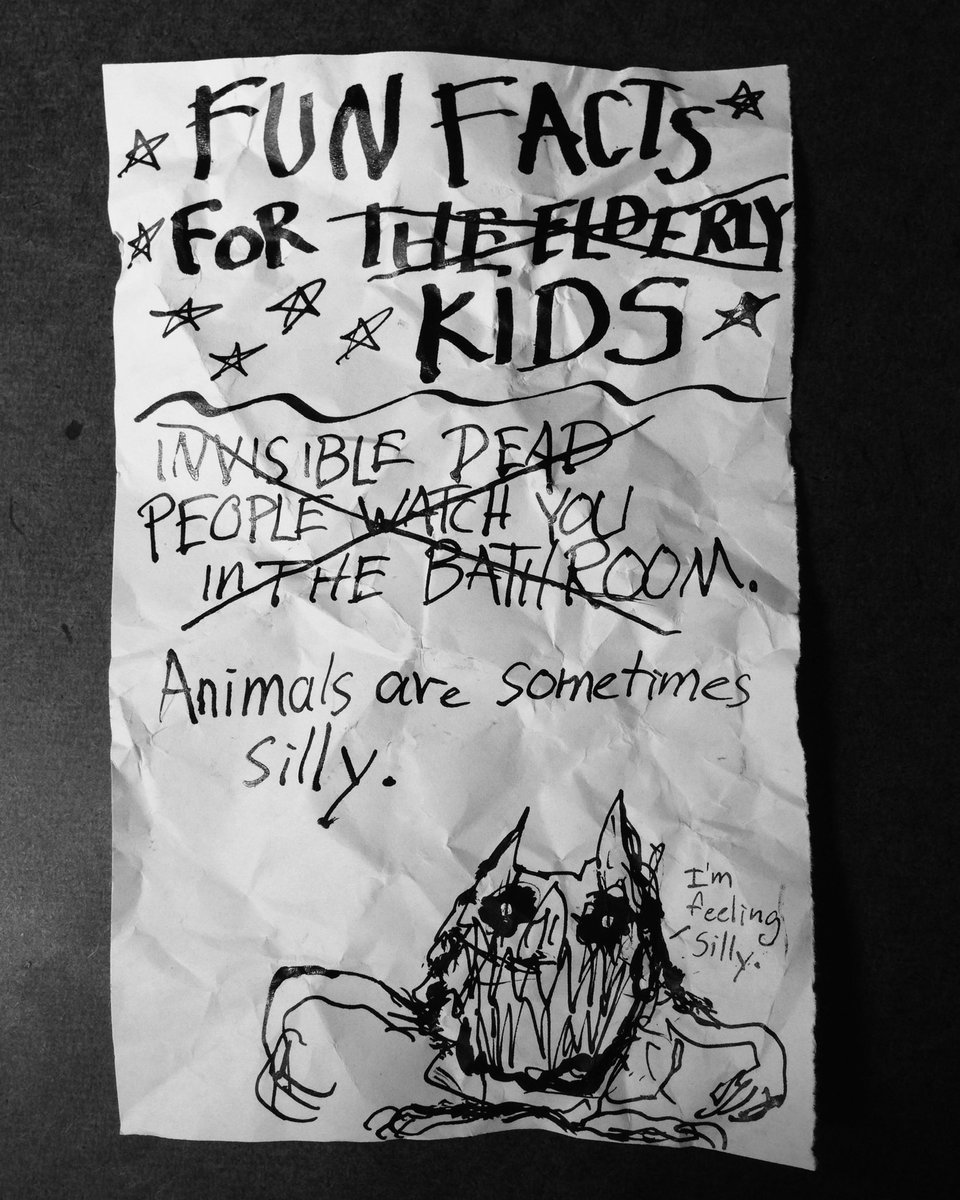 FUN FACTS
FOR THE ELDERLY
KIDS
INVISIBLE DEAD
PEOPLE WATCH YOU
in THE BATHROOM.
Animals are sometimes
silly.
I'm
feeling
silly.